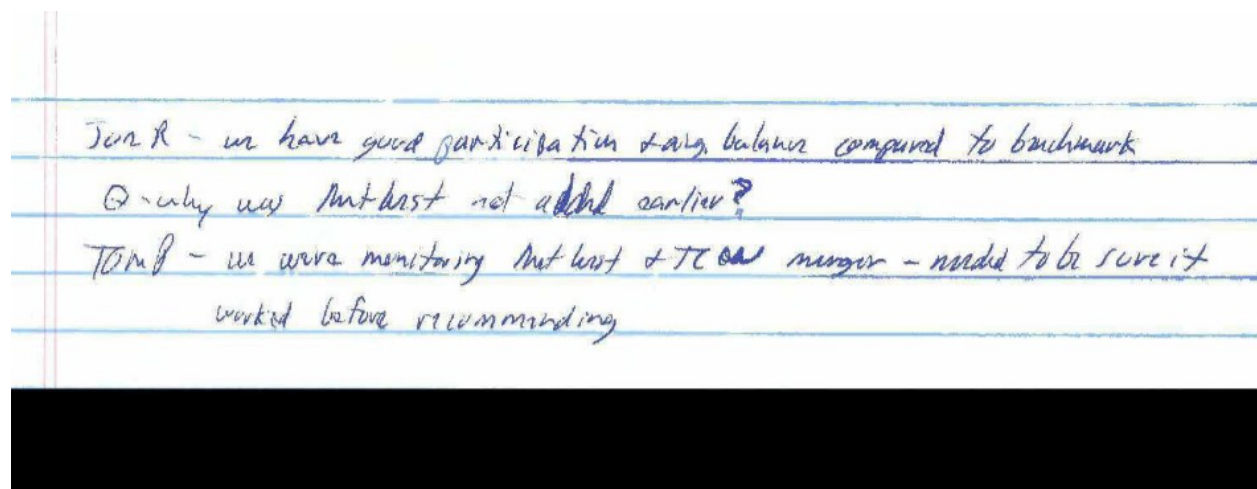 Jon R - we have good participation & avg. balance compared to benchmark
Q - why was Met West not added earlier?
Tom B - we were monitoring Met West & TCW merger - needed to be sure it
worked before recommending